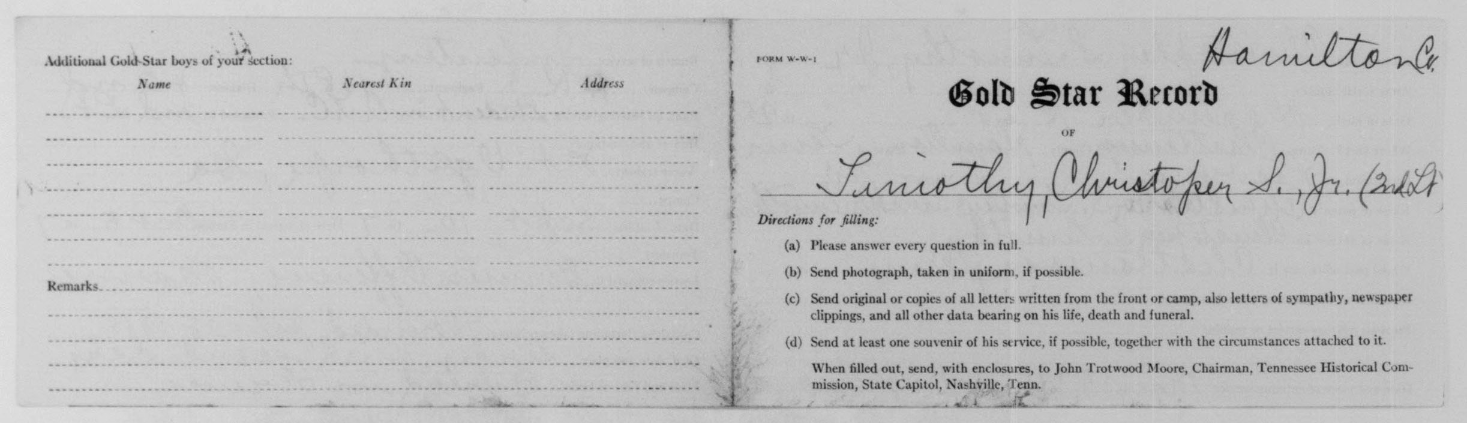 Additional Gold Star boys of your section:
Name Nearest Kin Address
Remarks
FORM W-W-1
Hamilton Co.
Gold Star Record
OF
Timothy, Christoper S., Jr. (2nd Lt)
Directions for filling:
(a) Please answer every question in full.
(b) Send photograph, taken in uniform, if possible.
(c) Send original or copies of all letters written from the front or camp, also letters of sympathy, newspaper
clippings, and all other data bearing on his life, death and funeral.
(d) Send at least one souvenir of his service, if possible, together with the circumstances attached to it.
When filled out, send, with enclosures, to John Trotwood Moore, Chairman, Tennessee Historical Com-
mission, State Capitol, Nashville, Tenn.